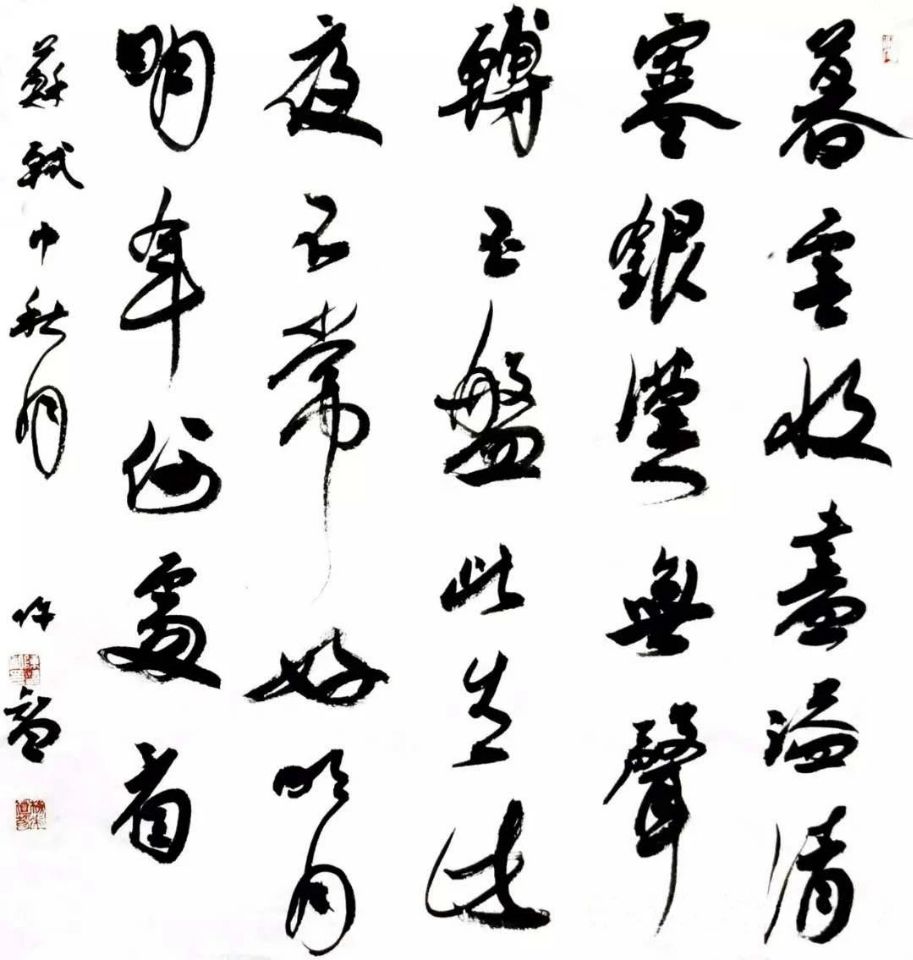 暮雲收盡溢清
寒銀漢無聲
轉玉盤此生此
夜不常好明月
明年何處看
蘇軾中秋月 許